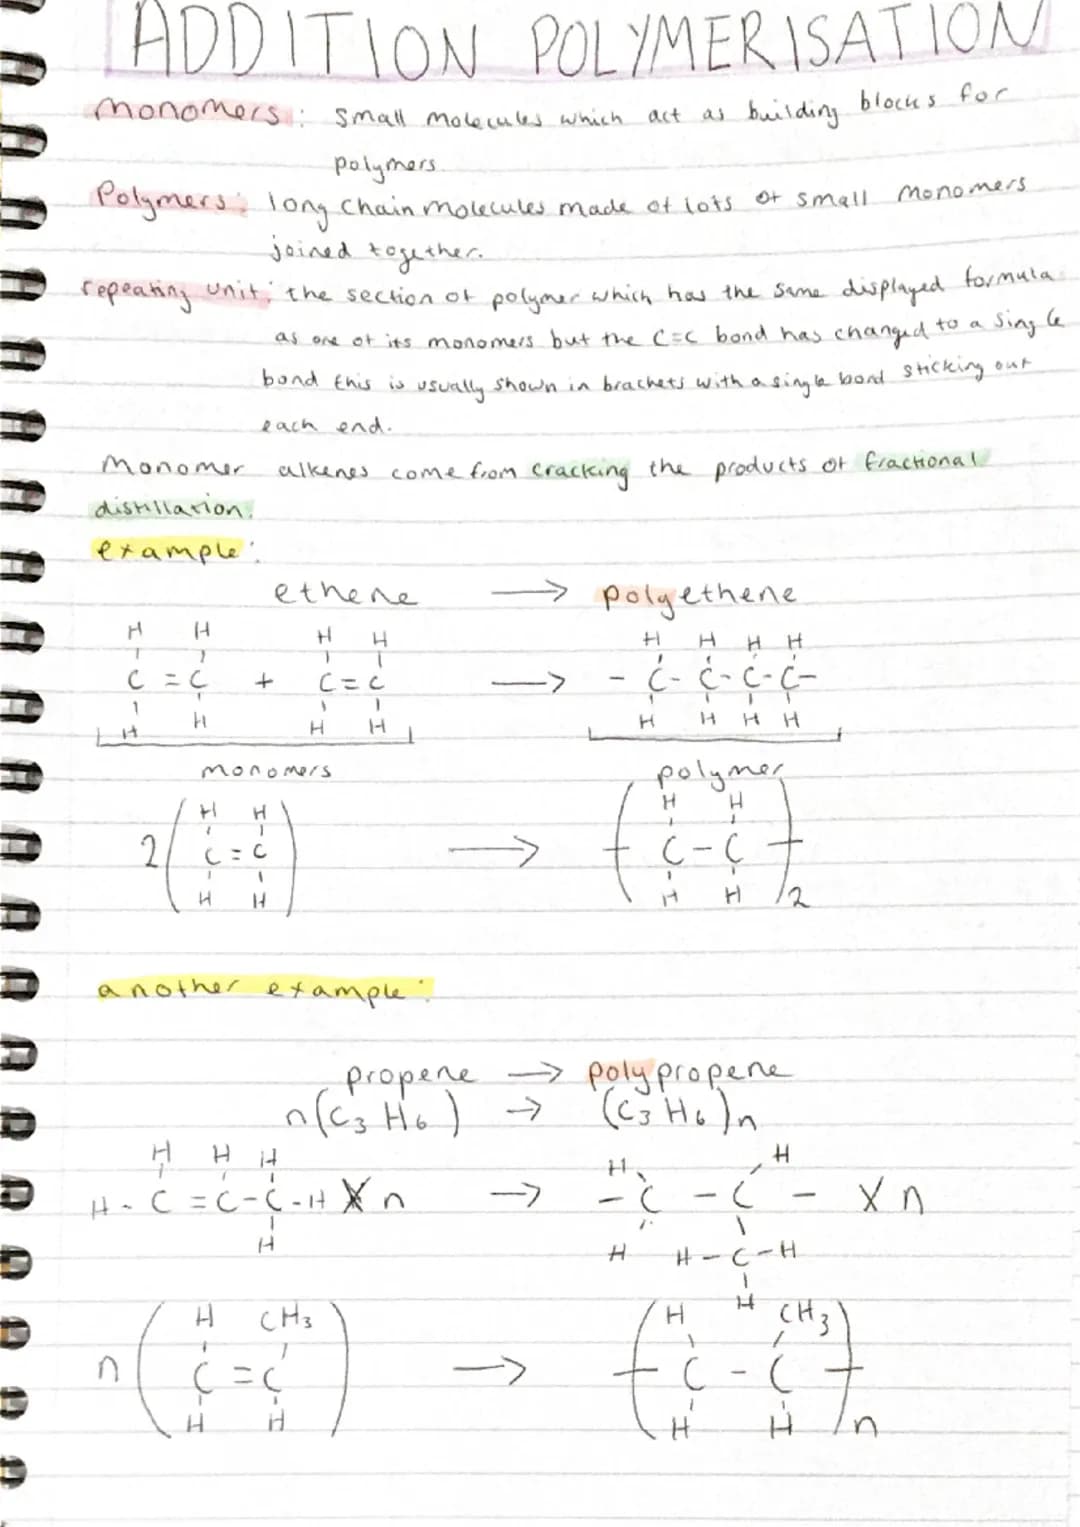 ADDITION POLYMERISATION
monomers: small molecules which act as building blocks for
polymers.
Polymers: long chain molecules made of lots of small monomers
joined together.
repeating unit: the section of polymer which has the same displayed formula
as one of its monomers but the C=C bond has changed to a single
bond this is usually shown in brackets with a single bond sticking out
each end.
Monomer alkenes come from cracking the products of fractional
distillation.
example:
ethene → polyethene
H H H H H H H H
C = C + C = C → - C - C - C - C -
H H H H H H H H
monomers polymer
H H H H
2 ( C = C ) → ( C - C ) 2
H H H H
another example:
propene → polypropene
n(C3H6) → (C3H6)n
H H H H H
H - C = C - C - H X n → - C - C - X n
H H H - C - H
H
H CH3 H CH3
n ( C = C ) → ( C - C ) n
H H H H